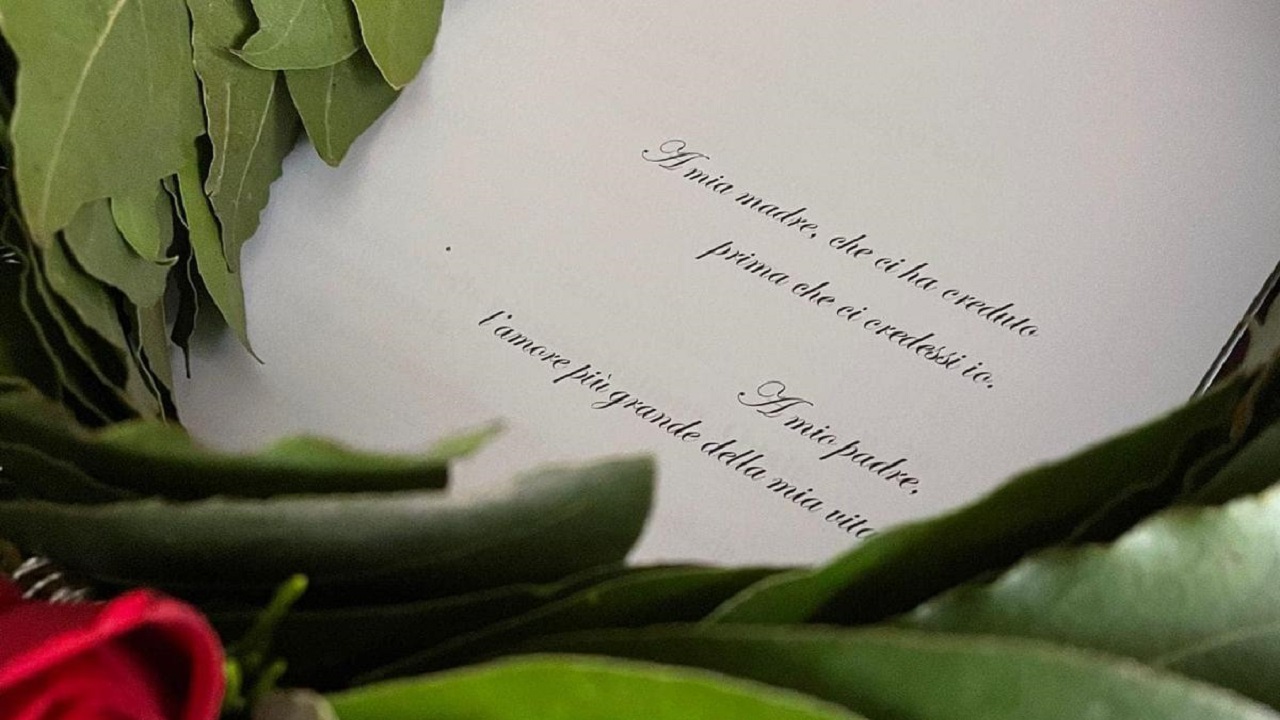 A mia madre, che ci ha creduto
prima che ci credessi io.
A mio padre,
l'amore più grande della mia vita